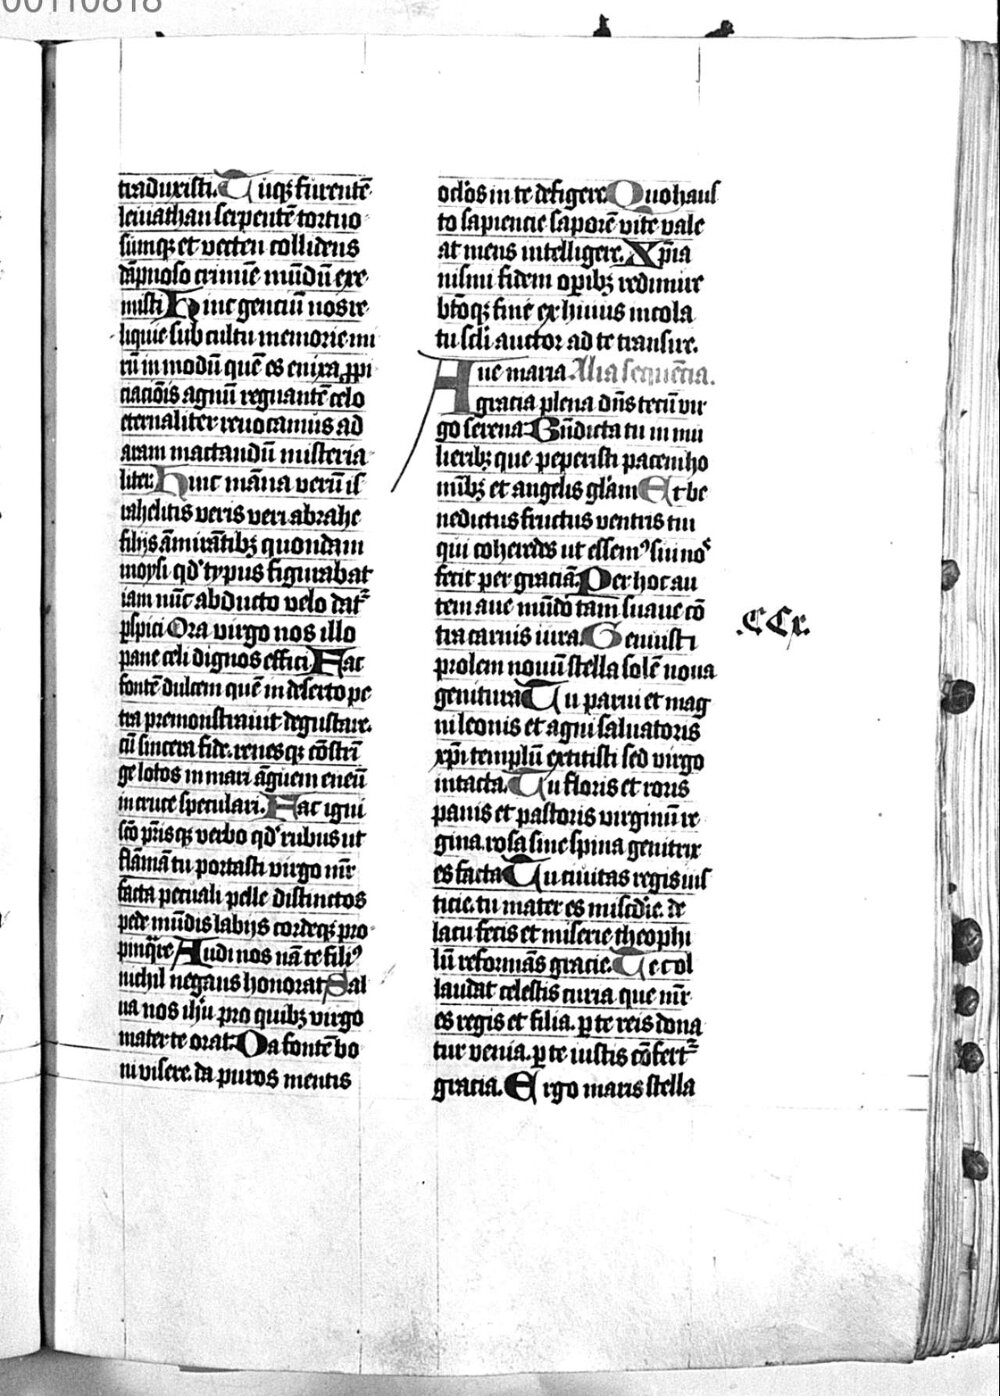 00110818
traduxisti. Tuqꝫ furentē
leuiathan serpentē tortuo
sumqꝫ et vecten collidens
dāpnoso crimīe mūdū exe
misti Hinc genciū nos re
liquie sub cultu memorie mi
rū in modū quē es enixa ꝓpi
ciacōis agnū regnantē celo
eternaliter reuocamus ad
aram mactandū misteria
liter. Hinc māna verū is
rahelitis veris veri abrahe
filijs āmirātibꝫ quondam
moysi qd' typus figurabat
iam nūc abducto velo dat᷑
ꝑspici Ora virgo nos illo
pane celi dignos effici Fac
fontē dulcem quē in deserto pe
tra premonstrauit degustare.
cū sincera fide. renesqꝫ cōstrī
ge lotos in mari āguem eneū
in cruce speculari. Fac igni
sc̄o pr̄isqꝫ verbo qd' rubus ut
flāmā tu portasti virgo mr̄
facta pecuali pelle distinctos
pede mūdis labijs cordeqꝫ pro
pinq̄re Audi nos nā te filiꝰ
nichil negans honorat Sal
ua nos ih'u pro quibꝫ virgo
mater te orat. Da fontē bo
ni visere. da puros mentis
oclōs in te defigere. Quo haus
to sapiencie saporē vite vale
at mens intelligere. Xp̄ia
nismi fidem oꝑibꝫ redimire
bt̄oqꝫ fine ex huius incola
tu scl̄i auctor ad te transire.
Aue maria Alia sequēcia.
gracia plena dn̄s tecū vir
go serena Bn̄dicta tu in mu
lieribꝫ que peperisti pacem ho
mībꝫ et angelis glām Et be
nedictus fructus ventris tui
qui coheredes ut essemꝰ sui noˢ
fecit per graciā. Per hoc au
tem aue mūdo tam suaue cō
tra carnis iura Genuisti
.CCx.
prolem nouū stella solē noua
genitura Tu parui et mag
ni leonis et agni saluatoris
xp̄i templū extitisti sed virgo
intacta. Tu floris et roris
panis et pastoris virginū re
gina. rosa sine spina genitrix
es facta Tu ciuitas regis ius
ticie. tu mater es mis'cdīe. de
lacu fecis et miserie theophi
lū reformās gracie. Te col
laudat celestis curia que mr̄
es regis et filia. ꝑ te reis dona
tur venia. ꝑ te iustis cōfert᷑
gracia. Ergo maris stella